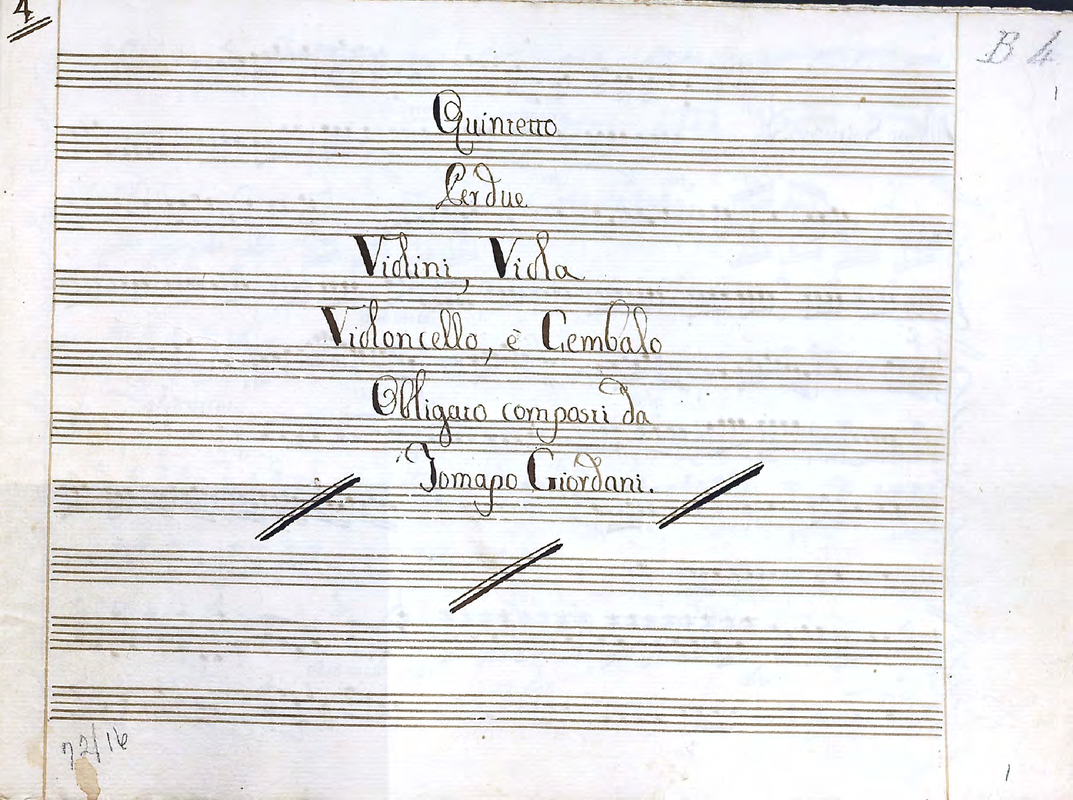 4
B 4
1
Quintetto
Per due
Violini, Viola
Violoncello, è Cembalo
Obligato composti da
Tomaso Giordani.
72/16
1